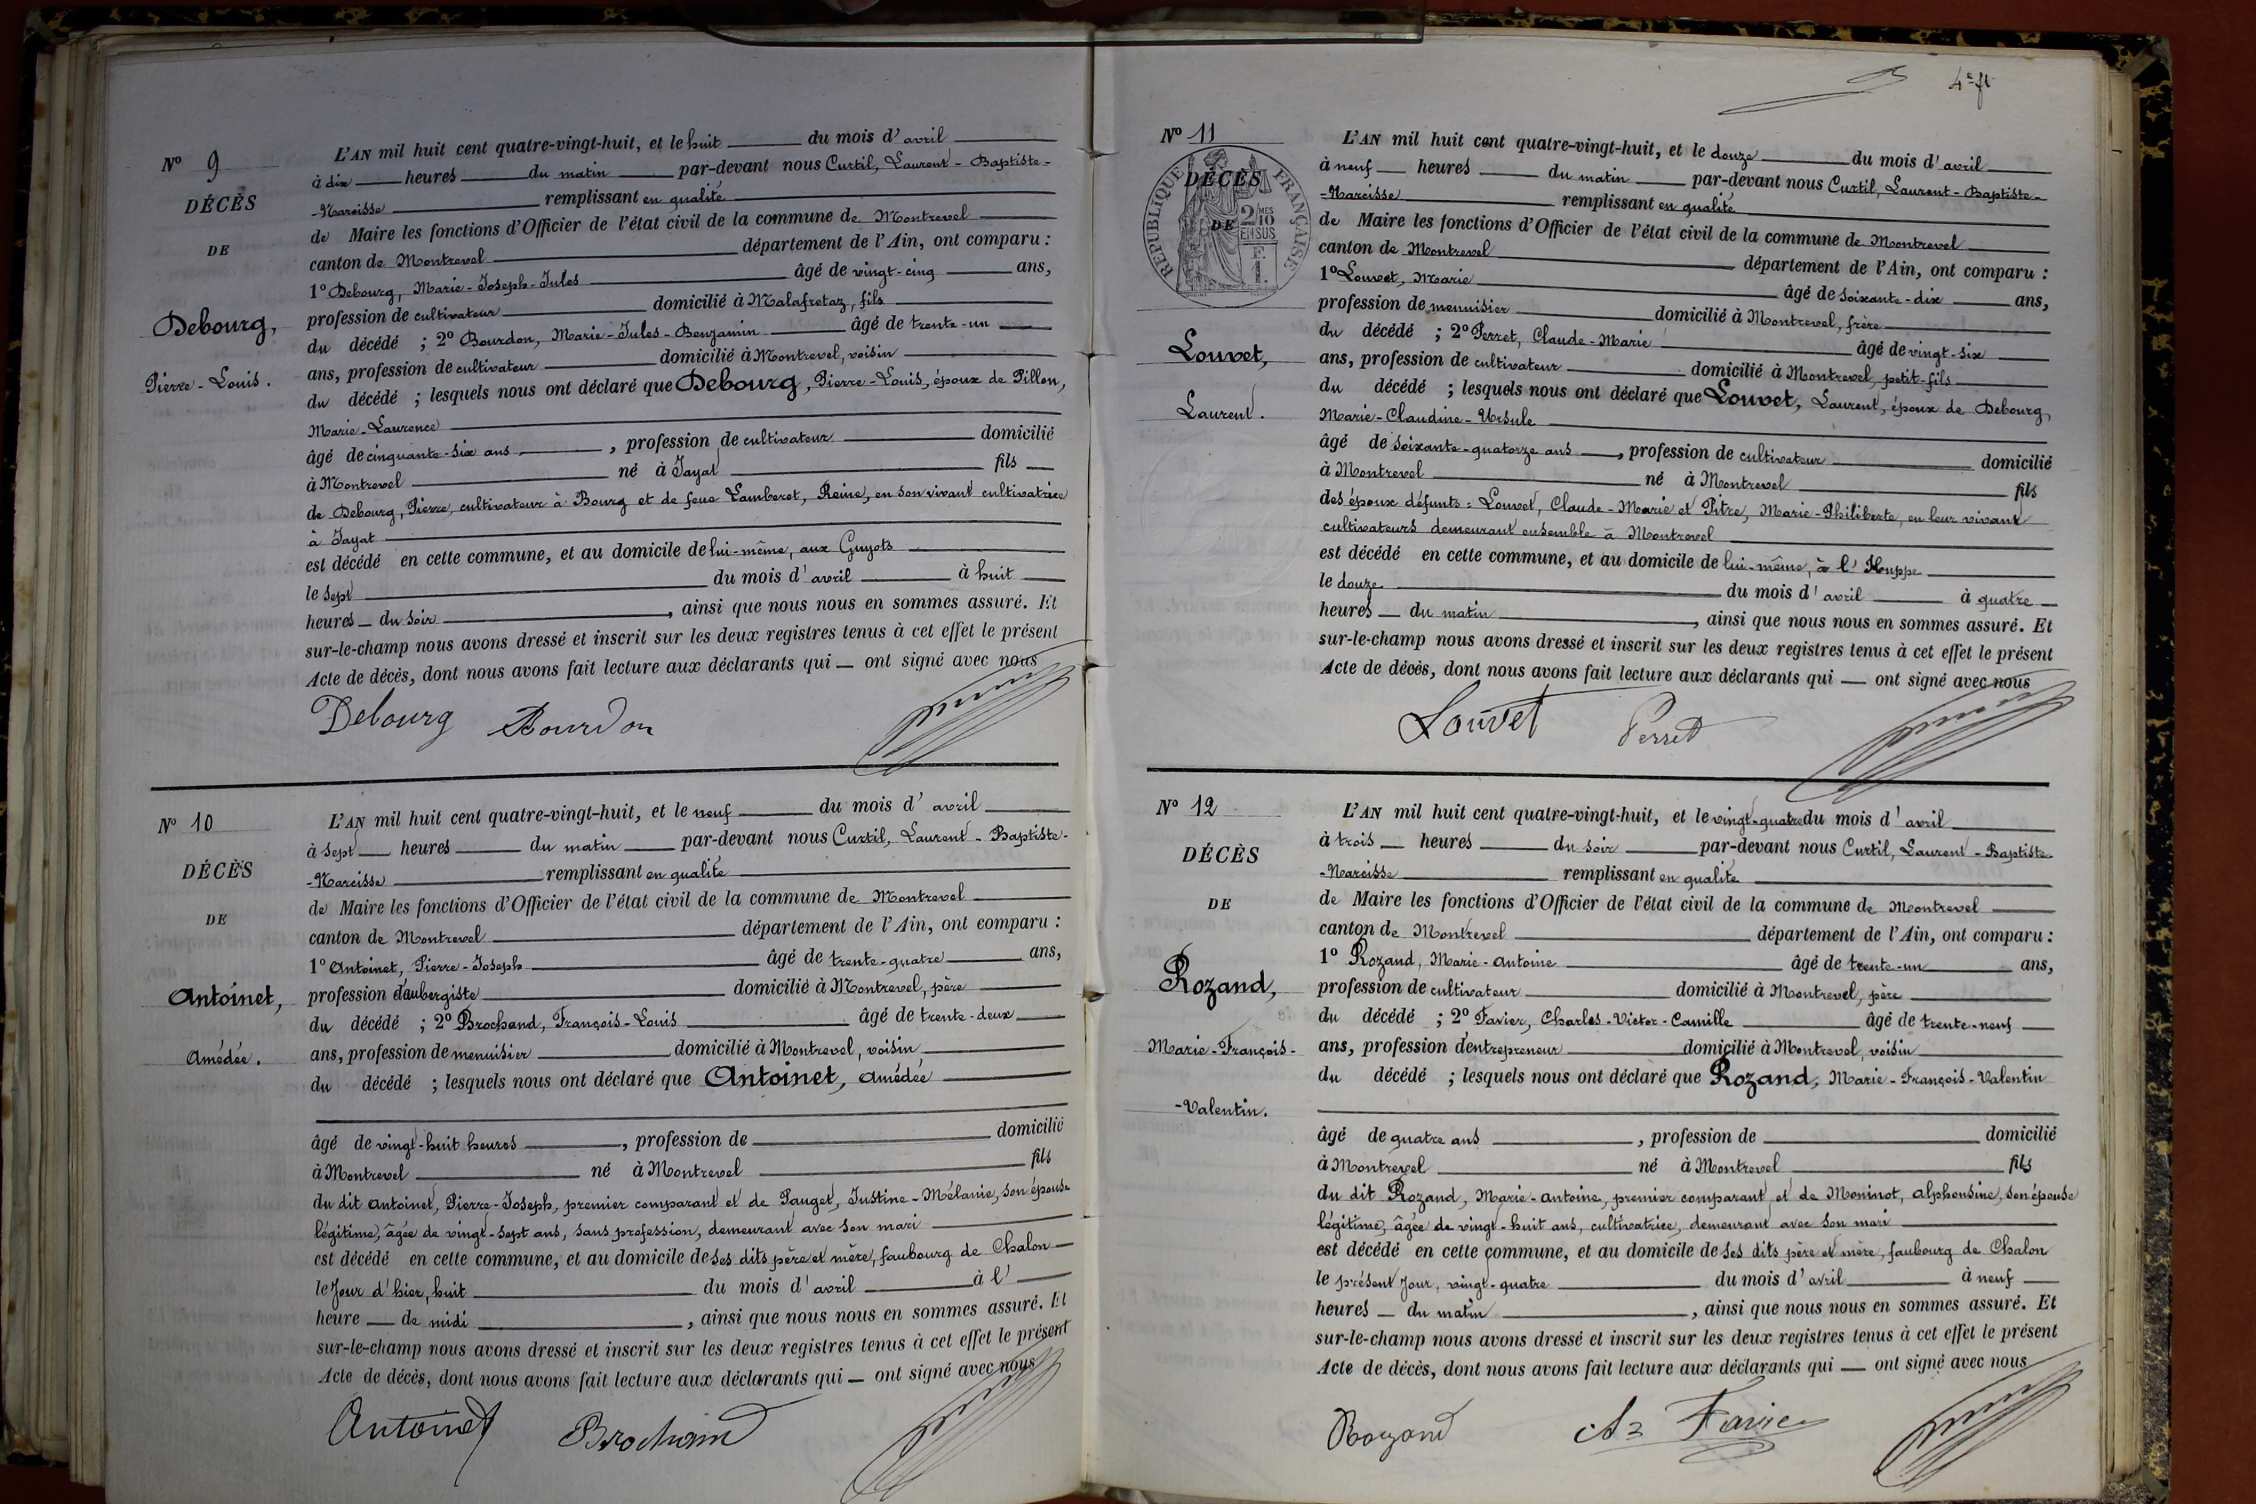 Nº 9
DÉCÈS
DE
Debourg,
Pierre-Louis.
L'AN mil huit cent quatre-vingt-huit, et le huit du mois d'avril
à dix heures du matin par-devant nous Curtil, Laurent-Baptiste-
-Narcisse remplissant en qualité
de Maire les fonctions d'Officier de l'état civil de la commune de Montrevel
canton de Montrevel département de l'Ain, ont comparu :
1º Debourg, Marie-Joseph-Jules âgé de vingt-cinq ans,
profession de cultivateur domicilié à Malafretaz, fils
du décédé ; 2º Bourdon, Marie-Jules-Benjamin âgé de trente-un
ans, profession de cultivateur domicilié à Montrevel, voisin
du décédé ; lesquels nous ont déclaré que Debourg, Pierre-Louis, époux de Pillon,
Marie-Laurence
âgé de cinquante-six ans, profession de cultivateur domicilié
à Montrevel né à Jayat fils
de Debourg, Pierre, cultivateur à Bourg et de feue Lamberet, Reine, en son vivant cultivatrice
à Jayat
est décédé en cette commune, et au domicile de lui-même, aux Guyots
le sept du mois d'avril à huit
heures du soir, ainsi que nous nous en sommes assuré. Et
sur-le-champ nous avons dressé et inscrit sur les deux registres tenus à cet effet le présent
Acte de décès, dont nous avons fait lecture aux déclarants qui — ont signé avec nous
Debourg Bourdon
Nº 10
DÉCÈS
DE
Antoinet,
Amédée.
L'AN mil huit cent quatre-vingt-huit, et le neuf du mois d'avril
à sept heures du matin par-devant nous Curtil, Laurent-Baptiste-
-Narcisse remplissant en qualité
de Maire les fonctions d'Officier de l'état civil de la commune de Montrevel
canton de Montrevel département de l'Ain, ont comparu :
1º Antoinet, Pierre-Joseph âgé de trente-quatre ans,
profession d'aubergiste domicilié à Montrevel, père
du décédé ; 2º Brochand, François-Louis âgé de trente-deux
ans, profession de menuisier domicilié à Montrevel, voisin
du décédé ; lesquels nous ont déclaré que Antoinet, Amédée
âgé de vingt-huit heures, profession de domicilié
à Montrevel né à Montrevel fils
du dit Antoinet, Pierre-Joseph, premier comparant et de Pauget, Justine-Mélanie, son épouse
légitime, âgée de vingt-sept ans, sans profession, demeurant avec son mari
est décédé en cette commune, et au domicile de ses dits père et mère, faubourg de Chalon
le jour d'hier, huit du mois d'avril à l'
heure de midi, ainsi que nous nous en sommes assuré. Et
sur-le-champ nous avons dressé et inscrit sur les deux registres tenus à cet effet le présent
Acte de décès, dont nous avons fait lecture aux déclarants qui — ont signé avec nous
Antoinet Brochand
4e ft
Nº 11
DÉCÈS
DE
RÉPUBLIQUE FRANÇAISE
2/10 MES
EN SUS
F. 1.
Louvet,
Laurent.
L'AN mil huit cent quatre-vingt-huit, et le douze du mois d'avril
à neuf heures du matin par-devant nous Curtil, Laurent-Baptiste-
-Narcisse remplissant en qualité
de Maire les fonctions d'Officier de l'état civil de la commune de Montrevel
canton de Montrevel département de l'Ain, ont comparu :
1º Louvet, Marie âgé de soixante-dix ans,
profession de menuisier domicilié à Montrevel, frère
du décédé ; 2º Perret, Claude-Marie âgé de vingt-six
ans, profession de cultivateur domicilié à Montrevel, petit-fils
du décédé ; lesquels nous ont déclaré que Louvet, Laurent, époux de Debourg,
Marie-Claudine-Ursule
âgé de soixante-quatorze ans, profession de cultivateur domicilié
à Montrevel né à Montrevel fils
des époux défunts : Louvet, Claude-Marie et Pitre, Marie-Philiberte, en leur vivant
cultivateurs demeurant ensemble à Montrevel
est décédé en cette commune, et au domicile de lui-même, à l'Huppe
le douze du mois d'avril à quatre
heures du matin, ainsi que nous nous en sommes assuré. Et
sur-le-champ nous avons dressé et inscrit sur les deux registres tenus à cet effet le présent
Acte de décès, dont nous avons fait lecture aux déclarants qui — ont signé avec nous
Louvet Perret
Nº 12
DÉCÈS
DE
Rozand,
Marie-François-
-Valentin.
L'AN mil huit cent quatre-vingt-huit, et le vingt-quatre du mois d'avril
à trois heures du soir par-devant nous Curtil, Laurent-Baptiste
-Narcisse remplissant en qualité
de Maire les fonctions d'Officier de l'état civil de la commune de Montrevel
canton de Montrevel département de l'Ain, ont comparu :
1º Rozand, Marie-Antoine âgé de trente-un ans,
profession de cultivateur domicilié à Montrevel, père
du décédé ; 2º Favier, Charles-Victor-Camille âgé de trente-neuf
ans, profession d'entrepreneur domicilié à Montrevel, voisin
du décédé ; lesquels nous ont déclaré que Rozand, Marie-François-Valentin
âgé de quatre ans, profession de domicilié
à Montrevel né à Montrevel fils
du dit Rozand, Marie-Antoine, premier comparant et de Moninot, Alphonsine, son épouse
légitime, âgée de vingt-huit ans, cultivatrice, demeurant avec son mari
est décédé en cette commune, et au domicile de ses dits père et mère, faubourg de Chalon
le présent jour, vingt-quatre du mois d'avril à neuf
heures du matin, ainsi que nous nous en sommes assuré. Et
sur-le-champ nous avons dressé et inscrit sur les deux registres tenus à cet effet le présent
Acte de décès, dont nous avons fait lecture aux déclarants qui — ont signé avec nous
Rozand Favier